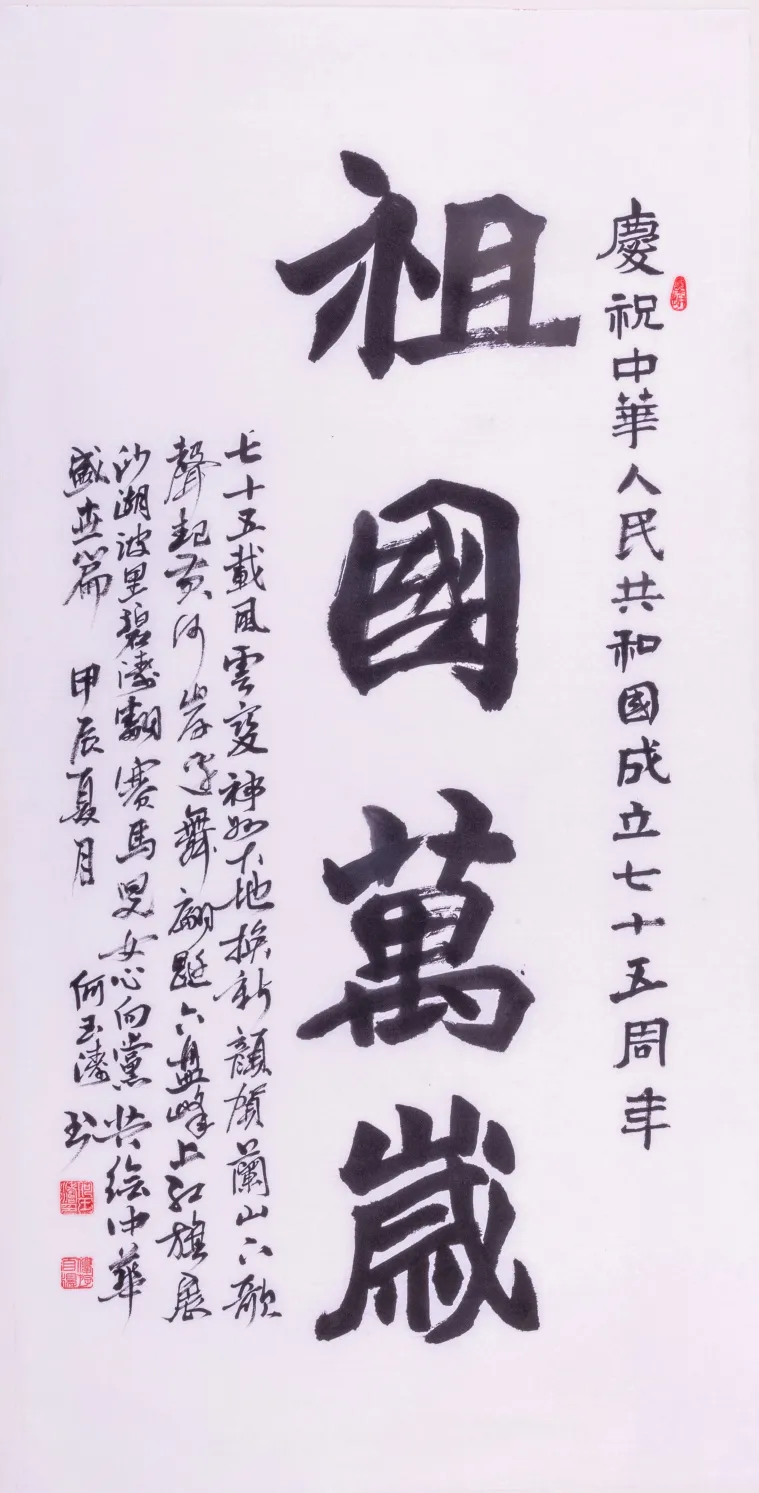 慶祝中華人民共和國成立七十五周年
祖國萬歲
七十五載風雲變神州大地換新顏賀蘭山下歌
聲起黃河岸邊舞翩躚六盤峰上紅旗展
沙湖波里碧濤翻賽馬兒女心向黨共繪中華
盛世篇 甲辰夏月 何玉濤 书